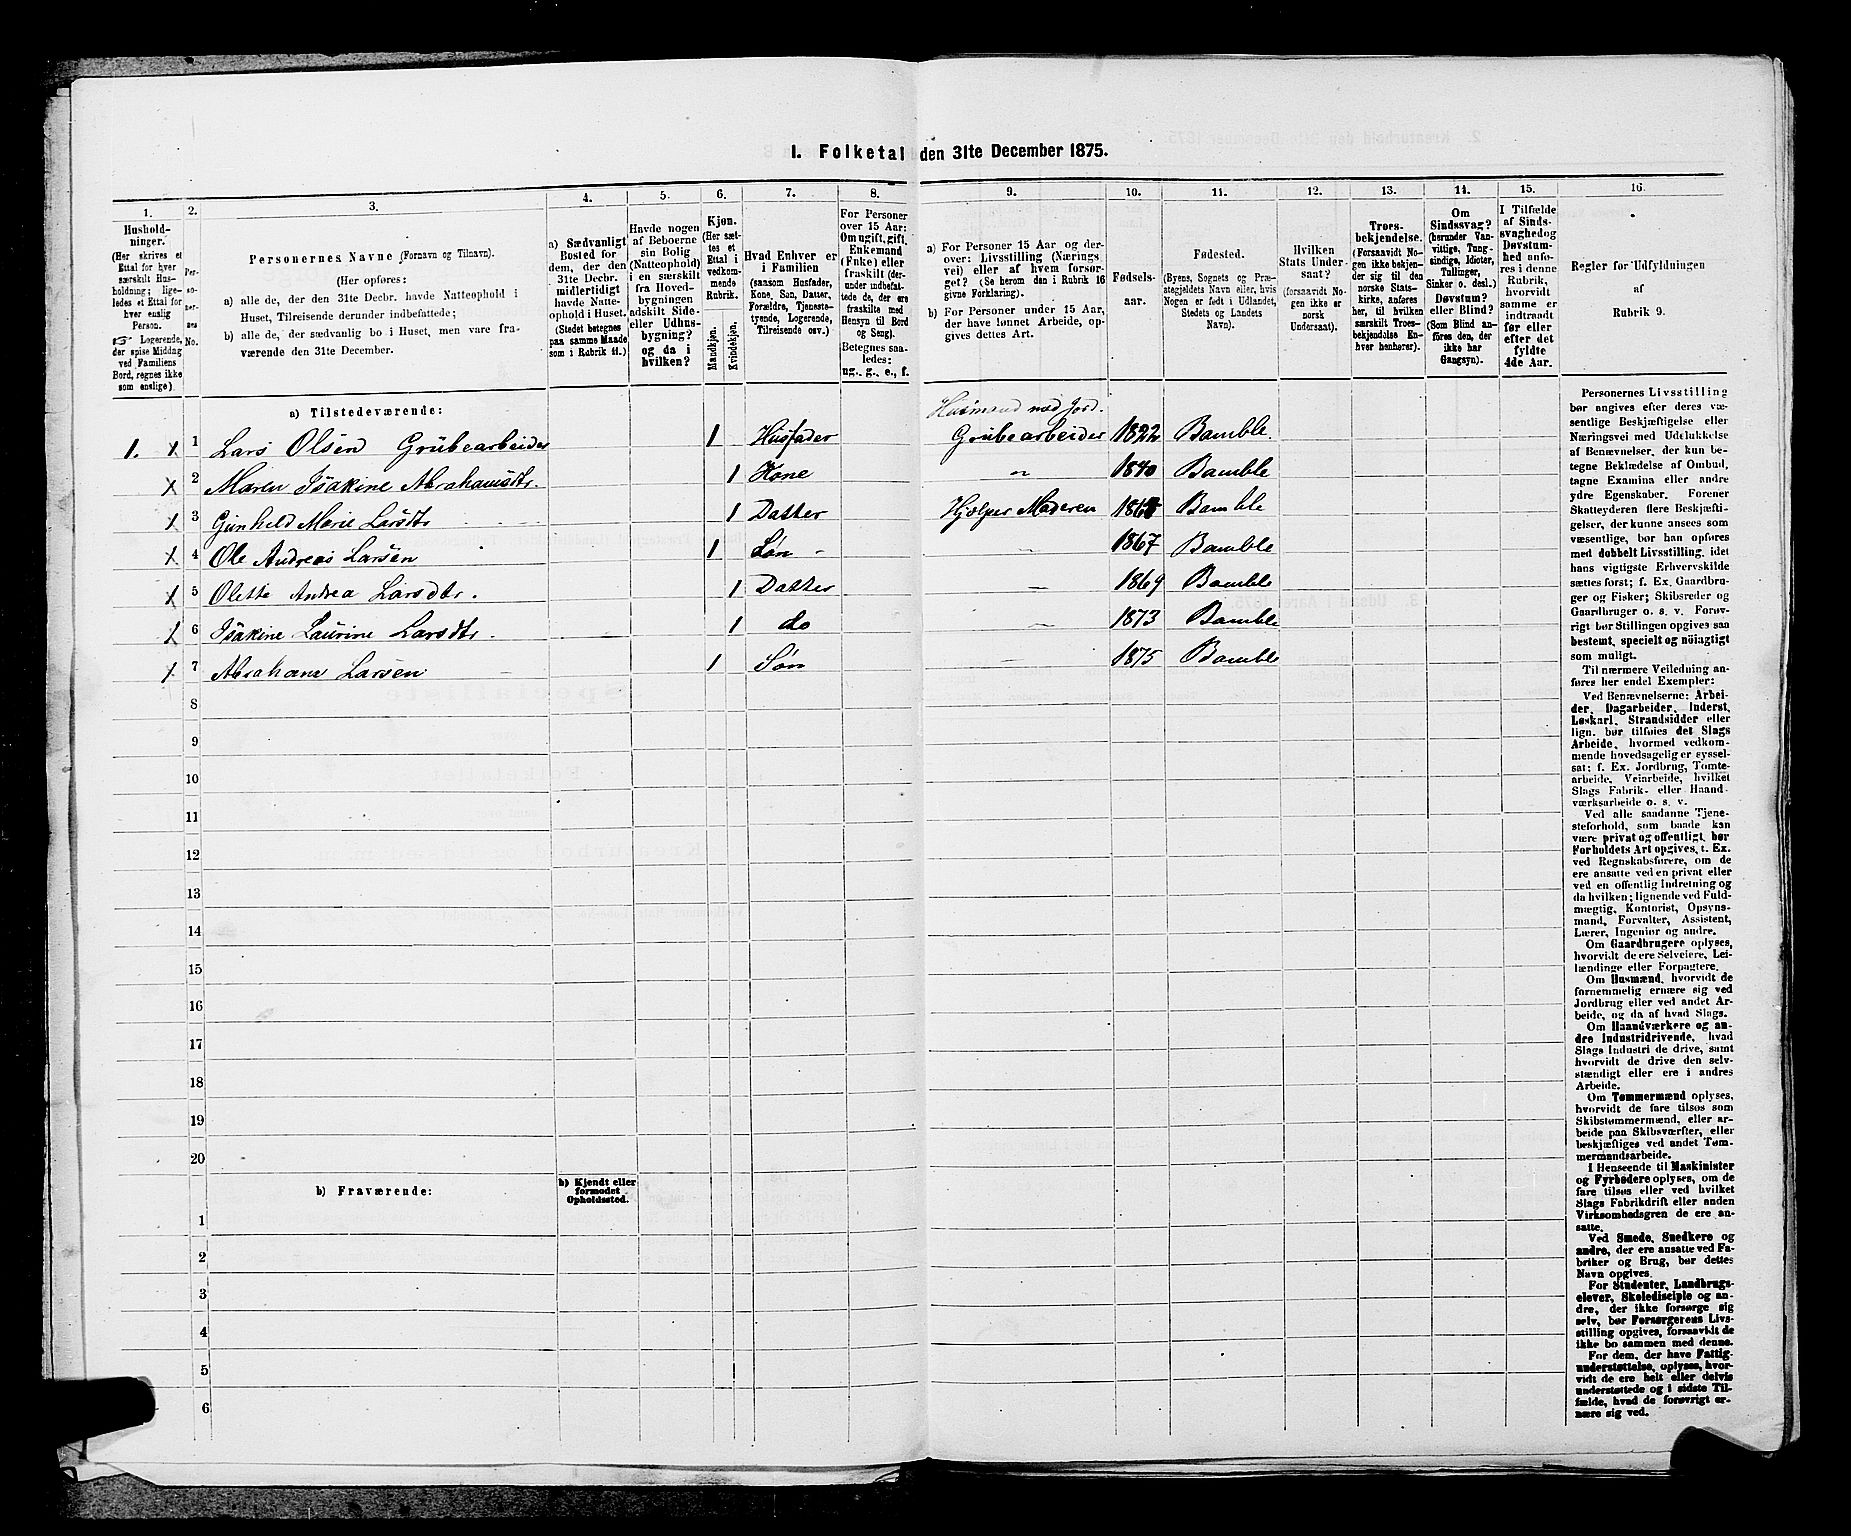 1. Folketal den 31te December 1875.
1.
2.
3.
4.
5.
6.
7.
8.
9.
10.
11.
12.
13.
14.
15.
16.
Hushold-
ninger.
(Her skrives et
Ettal for hver
særskilt Hus-
holdning; lige-
ledes et Ettal for
hver enslig
Person.
☞ Logerende,
der spise Middag
ved Familiens
Bord, regnes ikke
som enslige).
Per-
so-
ner-
nes
No.
Personernes Navne (Fornavn og Tilnavn).
(Her opføres:
a) alle de, der den 31te Decbr. havde Natteophold i
Huset, Tilreisende derunder indbefattede;
b) alle de, der sædvanlig bo i Huset, men vare fra-
værende den 31te December.
a) Sædvanligt
Bosted for
dem, der den
31te Decbr.
midlertidigt
havde Natte-
ophold i Huset.
(Stedet betegnes
paa samme Maade
som i Rubrik 11.)
Havde nogen
af Beboerne
sin Bolig
(Natteophold)
i en særskilt
fra Hoved-
bygningen
adskilt Side-
eller Udhus-
bygning?
og da i
hvilken?
Kjøn.
(Her sæt-
tes et
Ettal i
vedkom-
mende
Rubrik.
Mandkjøn.
Kvindekjøn.
Hvad Enhver er
i Familien
(saasom Husfader,
Kone, Søn, Datter,
Forældre, Tjeneste-
tyende, Logerende,
Tilreisende osv.)
For Personer
over 15 Aar:
Om ugift, gift,
Enkemand
(Enke) eller
fraskilt (der-
under indbefat-
tede de, der ere
fraskilte med
Hensyn til Bord
og Seng).
Betegnes saa-
ledes:
ug., g., e., f.
a) For Personer 15 Aar og der-
over: Livsstilling (Nærings
vei) eller af hvem forsør-
get? (Se herom den i Rubrik 16
givne Forklaring).
b) For Personer under 15 Aar,
der have lønnet Arbeide, op-
gives dettes Art.
Fødsels-
aar.
Fødested.
(Byens, Sognets og Præ-
stegjeldets Navn eller, hvis
Nogen er født i Udlandet,
Stedets og Landets
Navn).
Hvilken
Stats Under-
saat?
(forsaavidt No-
gen ikke er
norsk
Undersaat).
Troes-
bekjendelse.
(Forsaavidt No-
gen ikke bekjen-
der sig til den
norske Stats-
kirke, anføres
her, til hvilken
særskilt Troes-
bekjendelse En-
hver henhører).
Om
Sindssvag?
(herunder Van-
vittige, Tung-
sindige, Idioter,
Tullinger,
Sinker o. desl.)
Døvstum?
eller Blind?
(Som Blind an-
føres den, der
ikke har
Gangsyn).
I Tilfælde
af Sinds-
svaghed og
Døvstum-
hed anfø-
res i denne
Rubrik,
hvorvidt
samme er
indtraadt
før eller
efter det
fyldte
4de Aar.
Regler for Udfyldningen
af
Rubrik 9.
a) Tilstedeværende:
Husmand med Jord.
1. x 1 Lars Olsen Grubearbeider 1 Husfader Grubearbeider 1822 Bamble.
x 2 Maren Isakine Abrahamsdtr. 1 Kone „ 1840 Bamble
x 3 Gunhild Marie Larsdtr 1 Datter Hjælper Moderen Bamble
x 4 Ole Andreas Larsen 1 Søn - — 1867 Bamble
x 5 Olette Andrea Larsdtr. 1 Datter — 1869 Bamble
x 6 Isakine Laurine Larsdtr. 1 do — 1873 Bamble
x 7 Abraham Larsen 1 Søn — 1875 Bamble
8
9
10
11
12
13
14
15
16
17
18
19
20
b) Fraværende:
b) Kjendt eller
formodet
Opholdssted.
1
2
3
4
5
6
Personernes Livsstilling
bør angives efter deres væ-
sentlige Beskjæftigelse eller
Næringsvei med Udelukkelse
af Benævnelser, der kun be-
tegne Beklædelse af Ombud,
tagne Examina eller andre
ydre Egenskaber. Forener
Skatteyderen flere Beskjæfti-
gelser, der kunne ansees som
væsentlige, bør han opføres
med dobbelt Livsstilling, idet
hans vigtigste Erhvervskilde
sættes først; f. Ex. Gaardbru-
ger og Fisker; Skibsreder og
Gaardbruger o. s. v. Forøv-
rigt bør Stillingen opgives saa
bestemt, specielt og nøiagtigt
som muligt.
Til nærmere Veiledning an-
føres her endel Exempler:
Ved Benævnelserne: Arbei-
der, Dagarbeider, Inderst,
Løskarl, Strandsidder eller
lign. bør tilføies det Slags
Arbeide, hvormed vedkom-
mende hovedsagelig er syssel-
sat; f. Ex. Jordbrug, Tomte-
arbeide, Veiarbeide, hvilket
Slags Fabrik- eller Haand-
værksarbeide o. s. v.
Ved alle saadanne Tjene-
steforhold, som baade kan
være privat og offentligt, bør
Forholdets Art opgives, f. Ex.
ved Regnskabsførere, om de
ere ansatte ved en privat eller
ved en offentlig Indretning og
da hvilken; lignende ved Fuld-
mægtig, Kontorist, Opsyns-
mand, Forvalter, Assistent,
Lærer, Ingeniør og andre.
Om Gaardbrugere oplyses,
hvorvidt de ere Selveiere, Lei-
lændinge eller Forpagtere.
Om Husmænd, hvorvidt de
fornemmelig ernære sig ved
Jordbrug eller ved andet Ar-
beide, og da af hvad Slags.
Om Haandværkere og an-
dre Industridrivende, hvad
Slags Industri de drive, samt
hvorvidt de drive den selv-
stændigt eller ere i andres
Arbeide.
Om Tømmermænd oplyses,
hvorvidt de fare tilsøs som
Skibstømmermænd, eller ar-
beide paa Skibsværfter, eller
beskjæftiges ved andet Tøm-
mermandsarbeide.
I Henseende til Maskinister
og Fyrbødere oplyses, om de
fare tilsøs eller ved hvilket
Slags Fabrikdrift eller anden
Virksomhedsgren de ere an-
satte.
Ved Smede, Snedkere og
andre, der ere ansatte ved Fa-
briker og Brug, bør dettes
Navn opgives.
For Studenter, Landbrugs-
elever, Skoledisciple og an-
dre, der ikke forsørge sig
selv, bør Forsørgerens Livs-
stilling opgives, forsaavidt de
ikke bo sammen med denne.
For dem, der have Fattig-
understøttelse, oplyses, hvor-
vidt de ere helt eller delvis
understøttede og i sidste Til-
fælde, hvad de forøvrigt er-
nære sig ved.